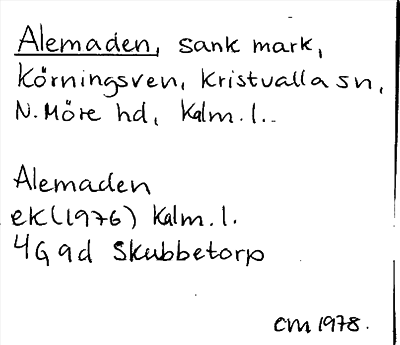 Alemaden, sank mark,
Körningsven, Kristvalla sn,
N. Möre hd, Kalm. l..
Alemaden
ek (1976) Kalm. l.
4G 9d Skubbetorp
CM 1978.